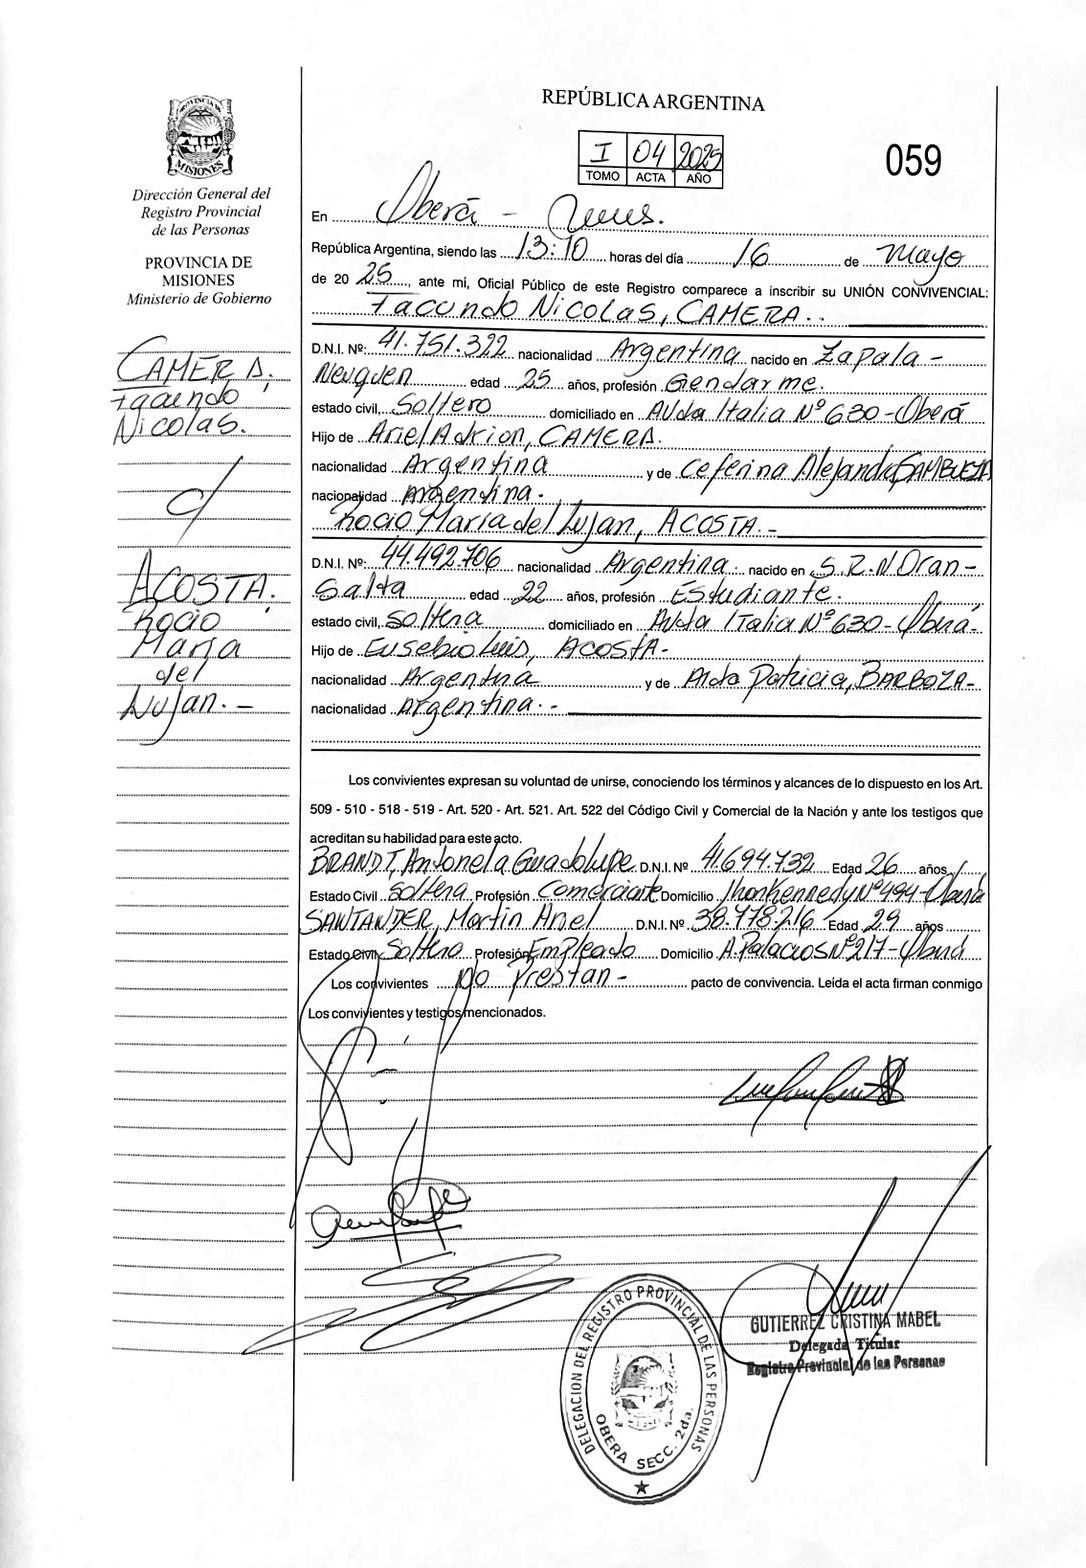 REPÚBLICA ARGENTINA
I 04 2025
TOMO ACTA AÑO
059
PROVINCIA DE
MISIONES
Dirección General del
Registro Provincial
de las Personas
PROVINCIA DE
MISIONES
Ministerio de Gobierno
CAMERA.
Facundo
Nicolas.
c/
ACOSTA.
Rocio
Maria
del
Lujan.-
En Oberá -
República Argentina, siendo las 13:10 horas del día 16 de Mayo
de 2025, ante mí, Oficial Público de este Registro comparece a inscribir su UNIÓN CONVIVENCIAL:
Facundo Nicolas, CAMERA..
D.N.I. Nº: 41.751.322 nacionalidad Argentina nacido en Zapala-
Neuquen edad 25 años, profesión Gendarme.
estado civil, Soltero domiciliado en Avda Italia Nº 630-Oberá
Hijo de Ariel Adrion, CAMERA.
nacionalidad Argentina y de Ceferina Alejandra,
nacionalidad Argentina.
Rocio Maria del Lujan, ACOSTA.-
D.N.I. Nº: 44.492.706 nacionalidad Argentina. nacido en S.R.N Oran-
Salta edad 22 años, profesión Estudiante.
estado civil, soltera domiciliado en Avda Italia Nº 630-Oberá-
Hijo de Eusebio Luis, ACOSTA-
nacionalidad Argentina y de Alda Patricia, BARBOZA-
nacionalidad Argentina.-
Los convivientes expresan su voluntad de unirse, conociendo los términos y alcances de lo dispuesto en los Art.
509 - 510 - 518 - 519 - Art. 520 - Art. 521. Art. 522 del Código Civil y Comercial de la Nación y ante los testigos que
acreditan su habilidad para este acto.
BRANDT, Antonela Guadalupe D.N.I. Nº 41.694.732 Edad 26 años,
Estado Civil Soltera Profesión Comerciante Domicilio Jhon Kennedy Nº 494-Oberá
SANTANDER, Martin Ariel D.N.I. Nº 38.778.216 Edad 29 años
Estado Civil Soltero Profesión Empleado Domicilio A. Palacios Nº 217-Oberá
Los convivientes no Prestan- pacto de convivencia. Leída el acta firman conmigo
Los convivientes y testigos mencionados.
GUTIERREZ CRISTINA MABEL
Delegada Titular
Registro Provincial de las Personas
DELEGACION DEL REGISTRO PROVINCIAL DE LAS PERSONAS
OBERA SECC. 2da.